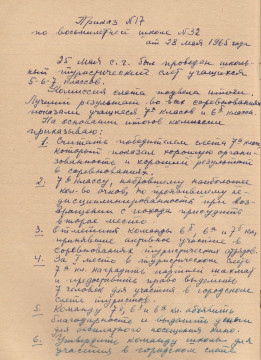 Приказ №17
по восьмилетней школе №32
от 28 мая 1965 года
25 мая с.г. был проведен школь-
ный туристический слет учащихся
5-6-7 классов.
Комиссия слета подвела итоги.
Лучшие результаты во всех соревнованиях
показали учащиеся 7ª классов и 6ª класс.
На основании итогов комиссии
приказываю:
1. Считать победителем слета 7ª класс,
который показал хорошую органи-
зованность и хорошие результаты
в соревнованиях.
2. 7 классу, набравшему наибольшее
кол-во очков, но проявившему не-
дисциплинированность при воз-
вращении с похода присудить
второе место.
3. Отметить команды 6 и 7 кл,
принявшие активное участие в
соревнованиях туристических отрядов.
4. За I место в туристическом слете
7ª кл. наградить
и предоставить право выделить
человек для участия в городском
слете туристов.
5. Команду 7, 6ª, 6 кл. объявить
благодарность и выделить деньги
для посещения кино.
6. Утвердить команду школы для
участия в городском слете